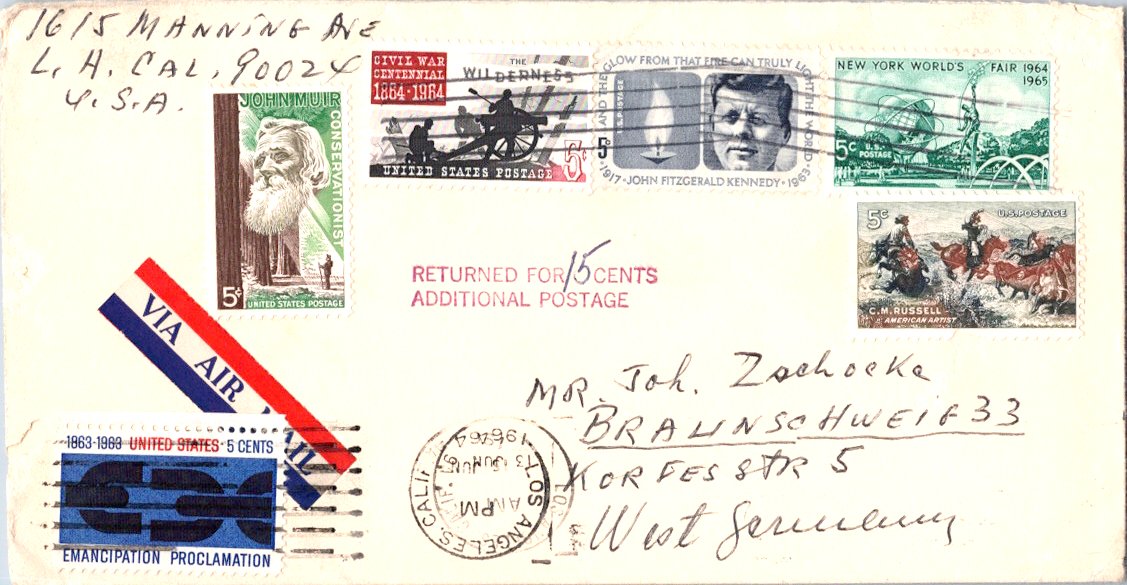 1615 MANNING AVE
L. A. CAL, 90024
U.S.A.
JOHN MUIR
CONSERVATIONIST
5¢
UNITED STATES POSTAGE
CIVIL WAR
CENTENNIAL
1864-1964
THE
WILDERNESS
UNITED STATES POSTAGE 5¢
AND THE GLOW FROM THAT FIRE CAN TRULY LIGHT THE WORLD
U.S. POSTAGE
5
1917 · JOHN FITZGERALD KENNEDY · 1963
NEW YORK WORLD'S FAIR 1964
1965
5¢ U.S.
POSTAGE
5¢ U.S. POSTAGE
C.M. RUSSELL
AMERICAN ARTIST
RETURNED FOR 15 CENTS
ADDITIONAL POSTAGE
VIA AIR MAIL
1863-1963 UNITED STATES · 5 CENTS
EMANCIPATION PROCLAMATION
LOS ANGELES, CALIF.
AM
PM
JUN
1964
MR. Joh. Zschocke
BRAUNSCHWEIG 33
KORFESSTR 5
West Germany